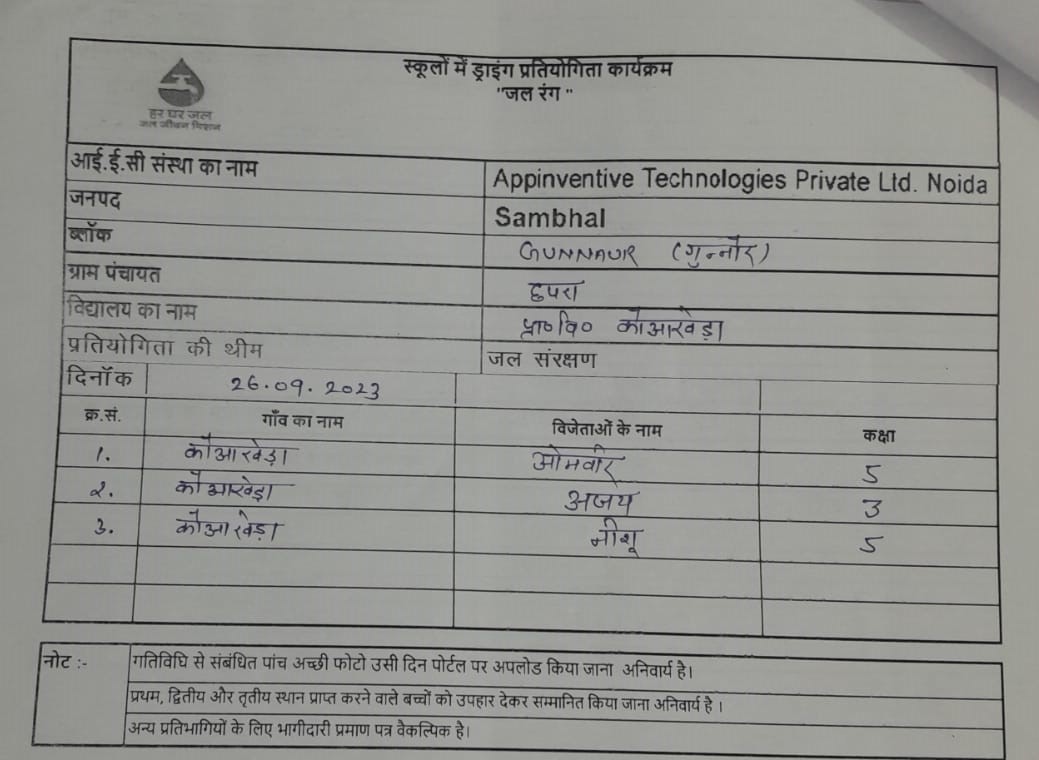 स्कूलों में ड्राइंग प्रतियोगिता कार्यक्रम
"जल रंग "
हर घर जल
जल जीवन मिशन
आई.ई.सी संस्था का नाम Appinventive Technologies Private Ltd. Noida
जनपद Sambhal
ब्लॉक GUNNAUR (गुन्नौर)
ग्राम पंचायत
विद्यालय का नाम प्रा०वि० कौआखेड़ा
प्रतियोगिता की थीम जल संरक्षण
दिनॉंक 26.09.2023
क्र.सं. गाँव का नाम विजेताओं के नाम कक्षा
1. कौआखेड़ा ओमवीर 5
2. कौआखेड़ा अजय 3
3. कौआखेड़ा नीशू 5
नोट :- गतिविधि से संबंधित पांच अच्छी फोटो उसी दिन पोर्टल पर अपलोड किया जाना अनिवार्य है।
प्रथम, द्वितीय और तृतीय स्थान प्राप्त करने वाले बच्चों को उपहार देकर सम्मानित किया जाना अनिवार्य है ।
अन्य प्रतिभागियों के लिए भागीदारी प्रमाण पत्र वैकल्पिक है।